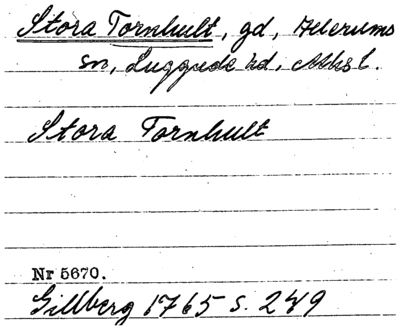 Stora Tornhult, gd, Allerums
sn, Luggude hd, Mhsl.
Stora Tornhult
Nr 5670.
Gillberg 1765 s. 249